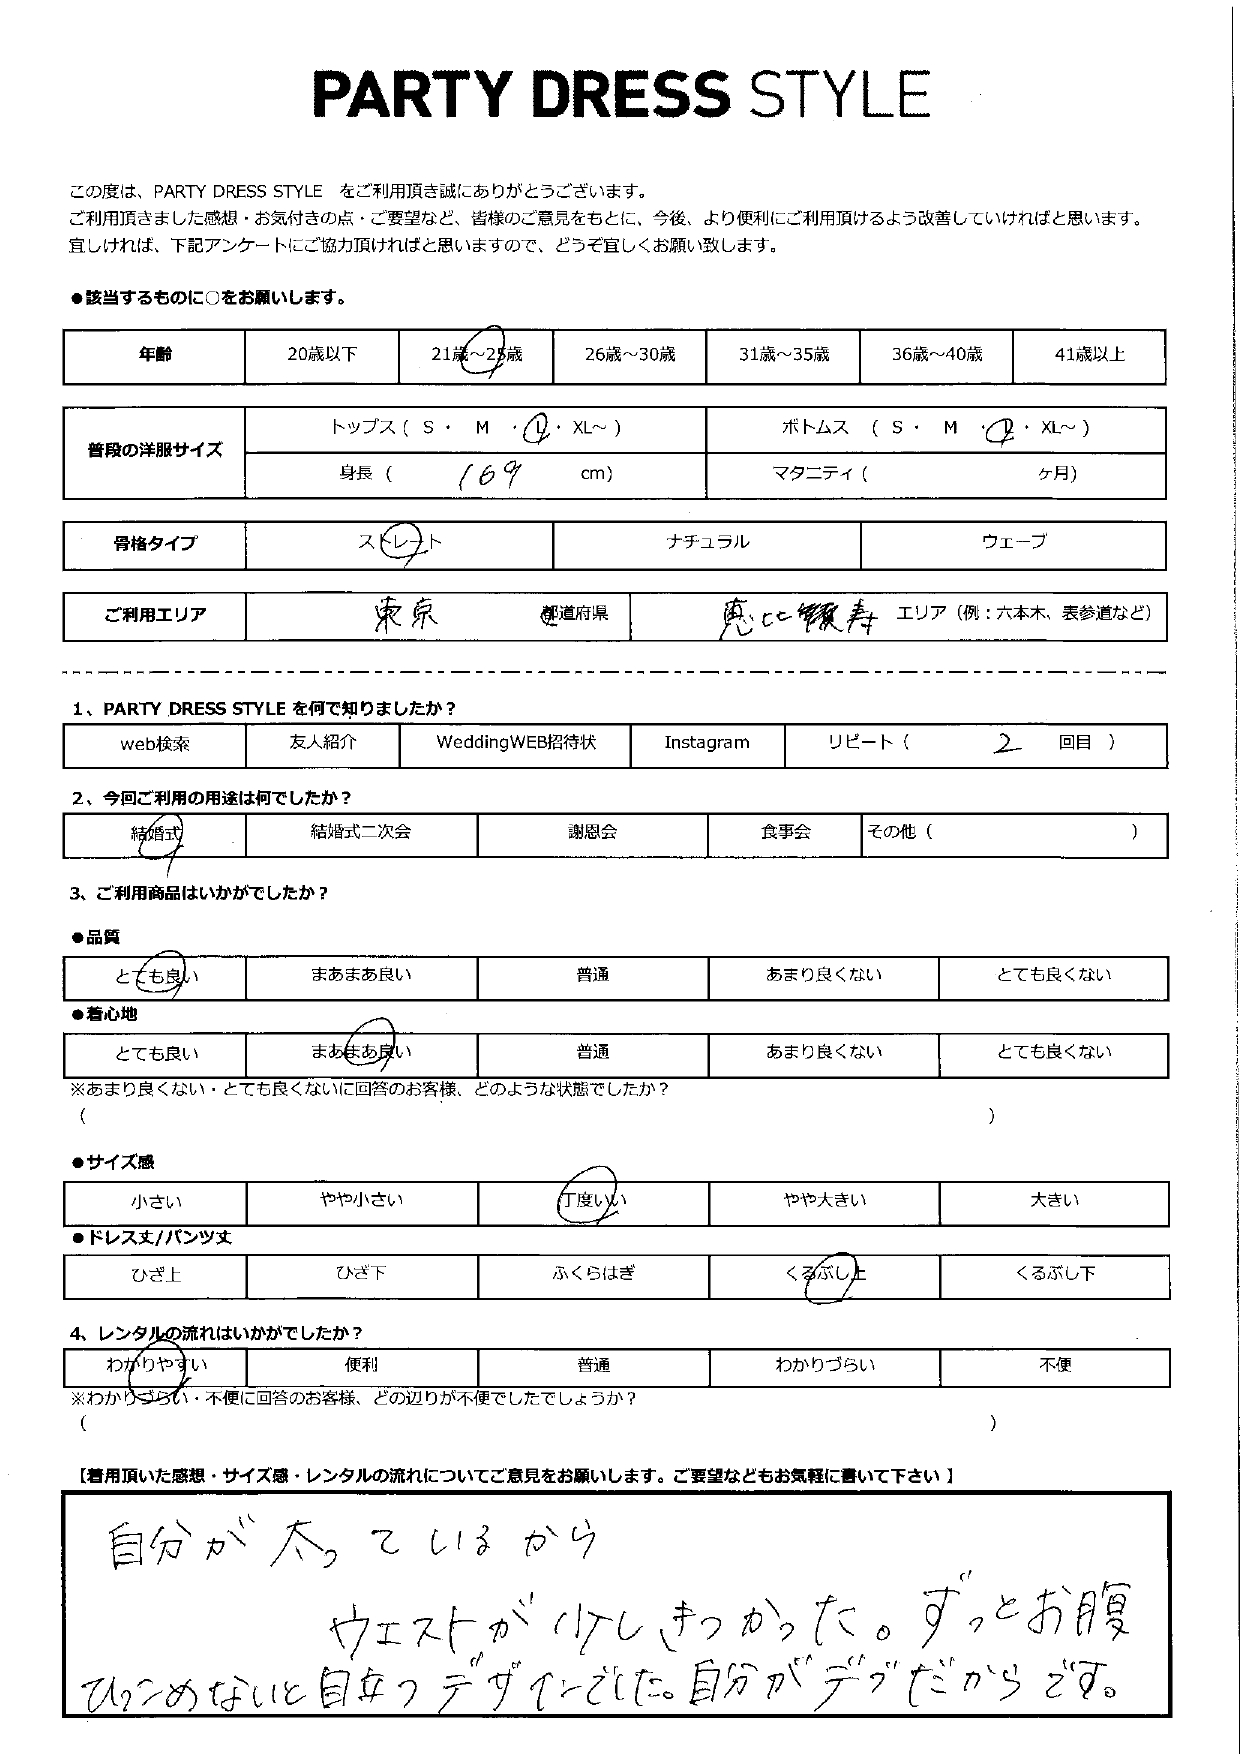 PARTY DRESS STYLE
この度は、PARTY DRESS STYLE をご利用頂き誠にありがとうございます。
ご利用頂きました感想・お気付きの点・ご要望など、皆様のご意見をもとに、今後、より便利にご利用頂けるよう改善していければと思います。
宜しければ、下記アンケートにご協力頂ければと思いますので、どうぞ宜しくお願い致します。
●該当するものに○をお願いします。
年齢 20歳以下 21歳～25歳 26歳～30歳 31歳～35歳 36歳～40歳 41歳以上
普段の洋服サイズ トップス ( S ・ M ・ L ・ XL～ ) ボトムス ( S ・ M ・ L ・ XL～ )
身長 ( 169 cm) マタニティ ( ヶ月)
骨格タイプ ストレート ナチュラル ウェーブ
ご利用エリア 東京 都道府県 恵比寿 エリア（例：六本木、表参道など）
1、PARTY DRESS STYLE を何で知りましたか？
web検索 友人紹介 WeddingWEB招待状 Instagram リピート ( 2 回目 )
2、今回ご利用の用途は何でしたか？
結婚式 結婚式二次会 謝恩会 食事会 その他 ( )
3、ご利用商品はいかがでしたか？
●品質
とても良い まあまあ良い 普通 あまり良くない とても良くない
●着心地
とても良い まあまあ良い 普通 あまり良くない とても良くない
※あまり良くない・とても良くないに回答のお客様、どのような状態でしたか？
( )
●サイズ感
小さい やや小さい 丁度いい やや大きい 大きい
●ドレス丈/パンツ丈
ひざ上 ひざ下 ふくらはぎ くるぶし上 くるぶし下
4、レンタルの流れはいかがでしたか？
わかりやすい 便利 普通 わかりづらい 不便
※わかりづらい・不便に回答のお客様、どの辺りが不便でしたでしょうか？
( )
【着用頂いた感想・サイズ感・レンタルの流れについてご意見をお願いします。ご要望などもお気軽に書いて下さい 】
自分が太っているから
ウエストが少しきつかった。ずっとお腹
ひっこめないと目立つデザインでした。自分がデブだからです。